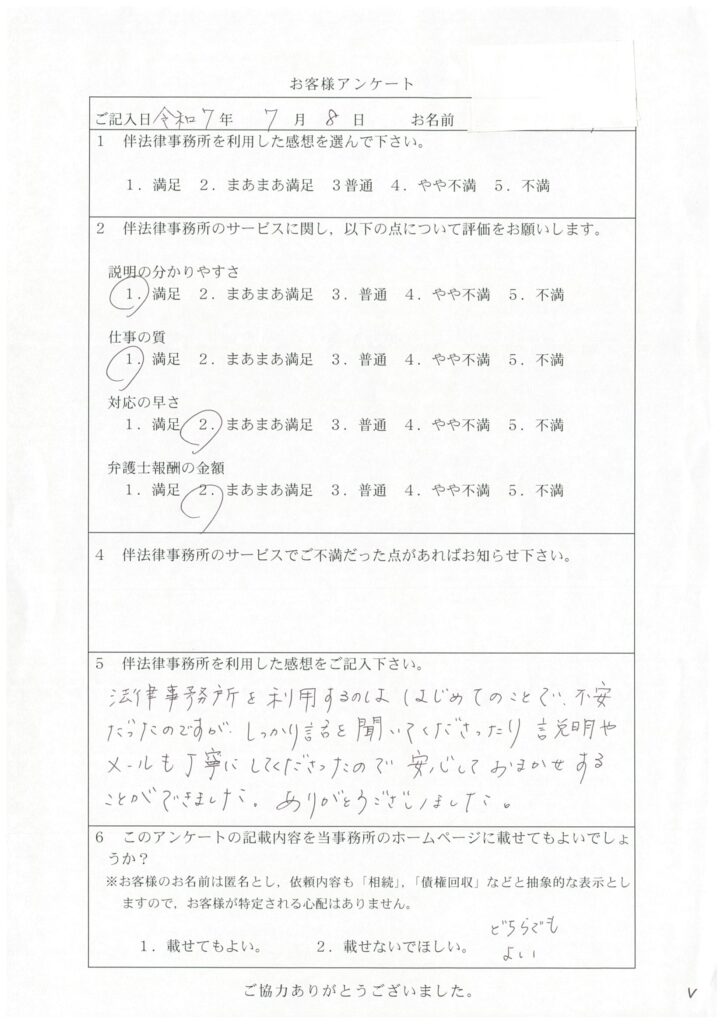 お客様アンケート
ご記入日 令和7年 7月 8日 お名前
1 伴法律事務所を利用した感想を選んで下さい。
1．満足 2．まあまあ満足 3普通 4．やや不満 5．不満
2 伴法律事務所のサービスに関し，以下の点について評価をお願いします。
説明の分かりやすさ
1．満足 2．まあまあ満足 3．普通 4．やや不満 5．不満
仕事の質
1．満足 2．まあまあ満足 3．普通 4．やや不満 5．不満
対応の早さ
1．満足 2．まあまあ満足 3．普通 4．やや不満 5．不満
弁護士報酬の金額
1．満足 2．まあまあ満足 3．普通 4．やや不満 5．不満
4 伴法律事務所のサービスでご不満だった点があればお知らせ下さい。
5 伴法律事務所を利用した感想をご記入下さい。
法律事務所を利用するのは はじめてのことで、不安
だったのですが、しっかり話を聞いてくださったり 説明や
メールも丁寧にしてくださったので 安心して おまかせする
ことができました。ありがとうございました。
6 このアンケートの記載内容を当事務所のホームページに載せてもよいでしょ
うか？
※お客様のお名前は匿名とし，依頼内容も「相続」，「債権回収」などと抽象的な表示とし
ますので，お客様が特定される心配はありません。
1．載せてもよい。 2．載せないでほしい。 どちらでも
よい
ご協力ありがとうございました。
v